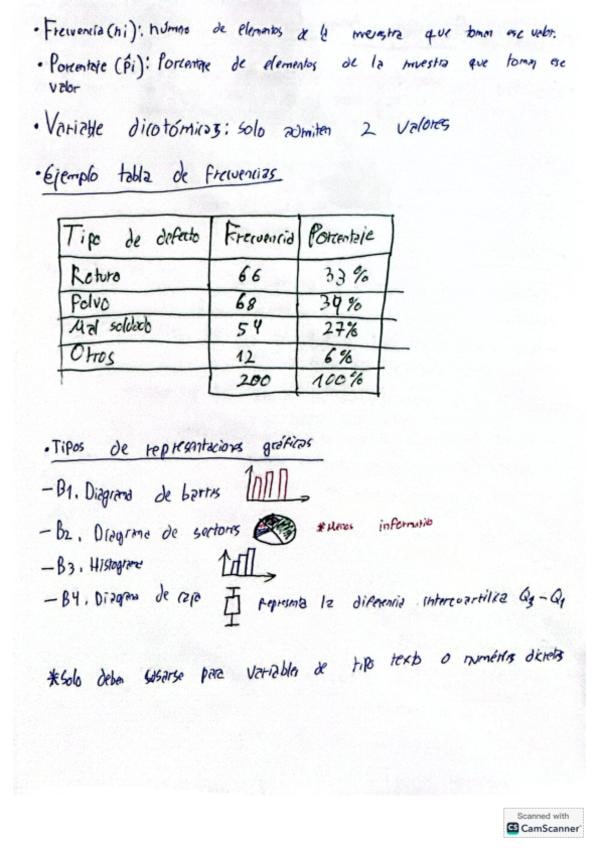 • Frecuencia (ni): número de elementos de la muestra que toman ese valor.
• Porcentaje (p̂i): Porcentaje de elementos de la muestra que toman ese
valor
• Variable dicotómicas: solo admiten 2 valores
• Ejemplo tabla de frecuencias
Tipo de defecto Frecuencia Porcentaje
Roturo 66 33%
Polvo 68 34%
Mal soldado 54 27%
Otros 12 6%
200 100%
• Tipos de representaciones gráficas
- B1. Diagrama de barras
- B2. Diagrama de sectores *Menos informativo
- B3. Histograma
- B4. Diagrama de caja Representa la diferencia intercuartílica Q3-Q1
*Solo deben usarse para variables de tipo texto o numéricas discretas
Scanned with
CS CamScanner